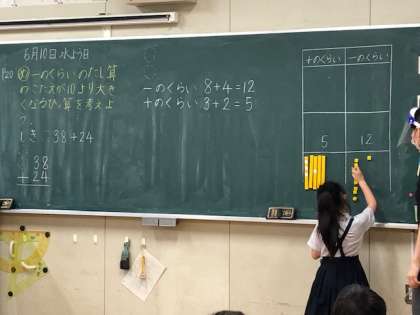 6月10日水よう日
P20 め 一のくらいのたし算
のこたえが10より大き
くなるひっ算を考えよ
う。
しき 38+24
38
+24
一のくらい 8+4=12
十のくらい 3+2=5
十のくらい 一のくらい
5 12